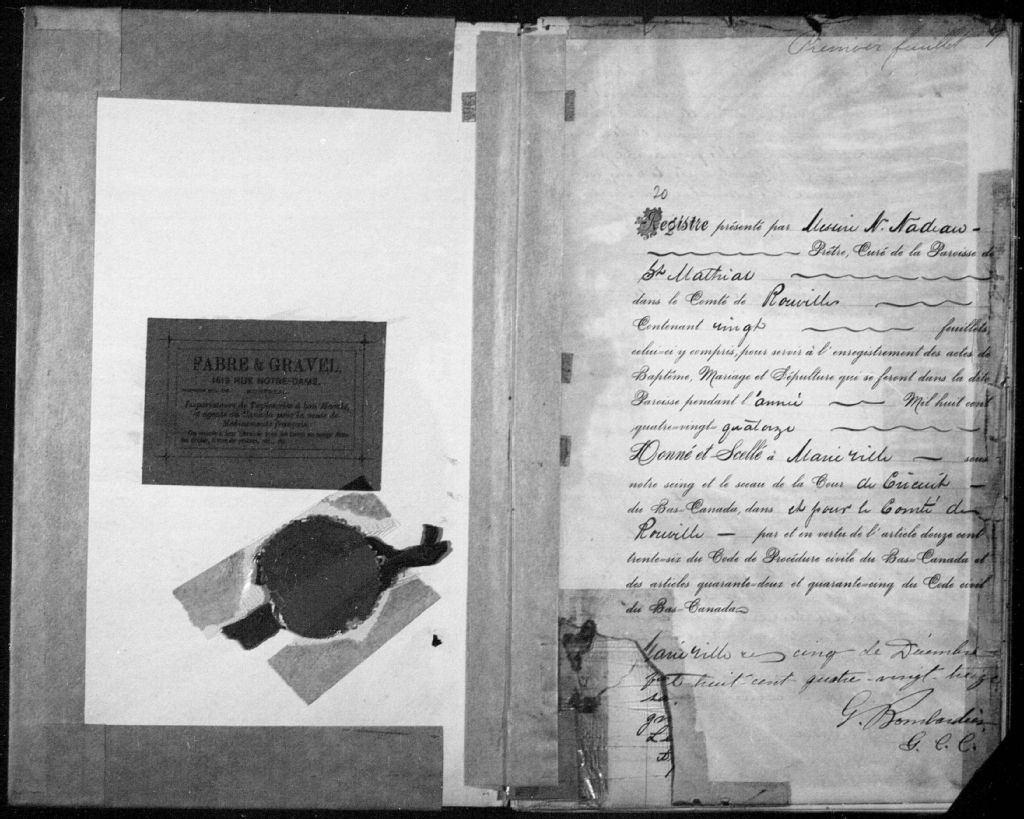 FABRE & GRAVEL,
1619 RUE NOTRE-DAME,
MONTREAL.
Premier feuillet
20
Registre présenté par Messire N. Nadeau
Prêtre, Curé de la Paroisse de
St Mathias
dans le Comté de Rouville
Contenant vingt feuillets,
celui-ci y compris, pour servir à l'enregistrement des actes de
Baptême, Mariage et Sépulture qui se feront dans la dite
Paroisse pendant l'année Mil huit cent
quatre-vingt quatorze
Donné et Scellé à Marieville sous
notre seing et le sceau de la Cour de Circuit
du Bas-Canada, dans et pour le Comté de
Rouville par et en vertu de l'article douze cent
trente-six du Code de Procédure civile du Bas-Canada et
des articles quarante-deux et quarante-cinq du Code civil
du Bas-Canada
Marieville ce cinq de Décembre
huit cent quatre-vingt treize
G. Bombardier
G. C. C.